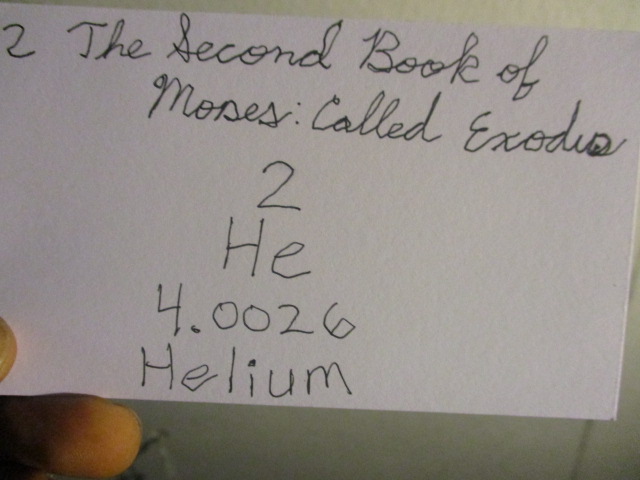 2 The Second Book of
Moses: Called Exodus
2
He
4.0026
Helium